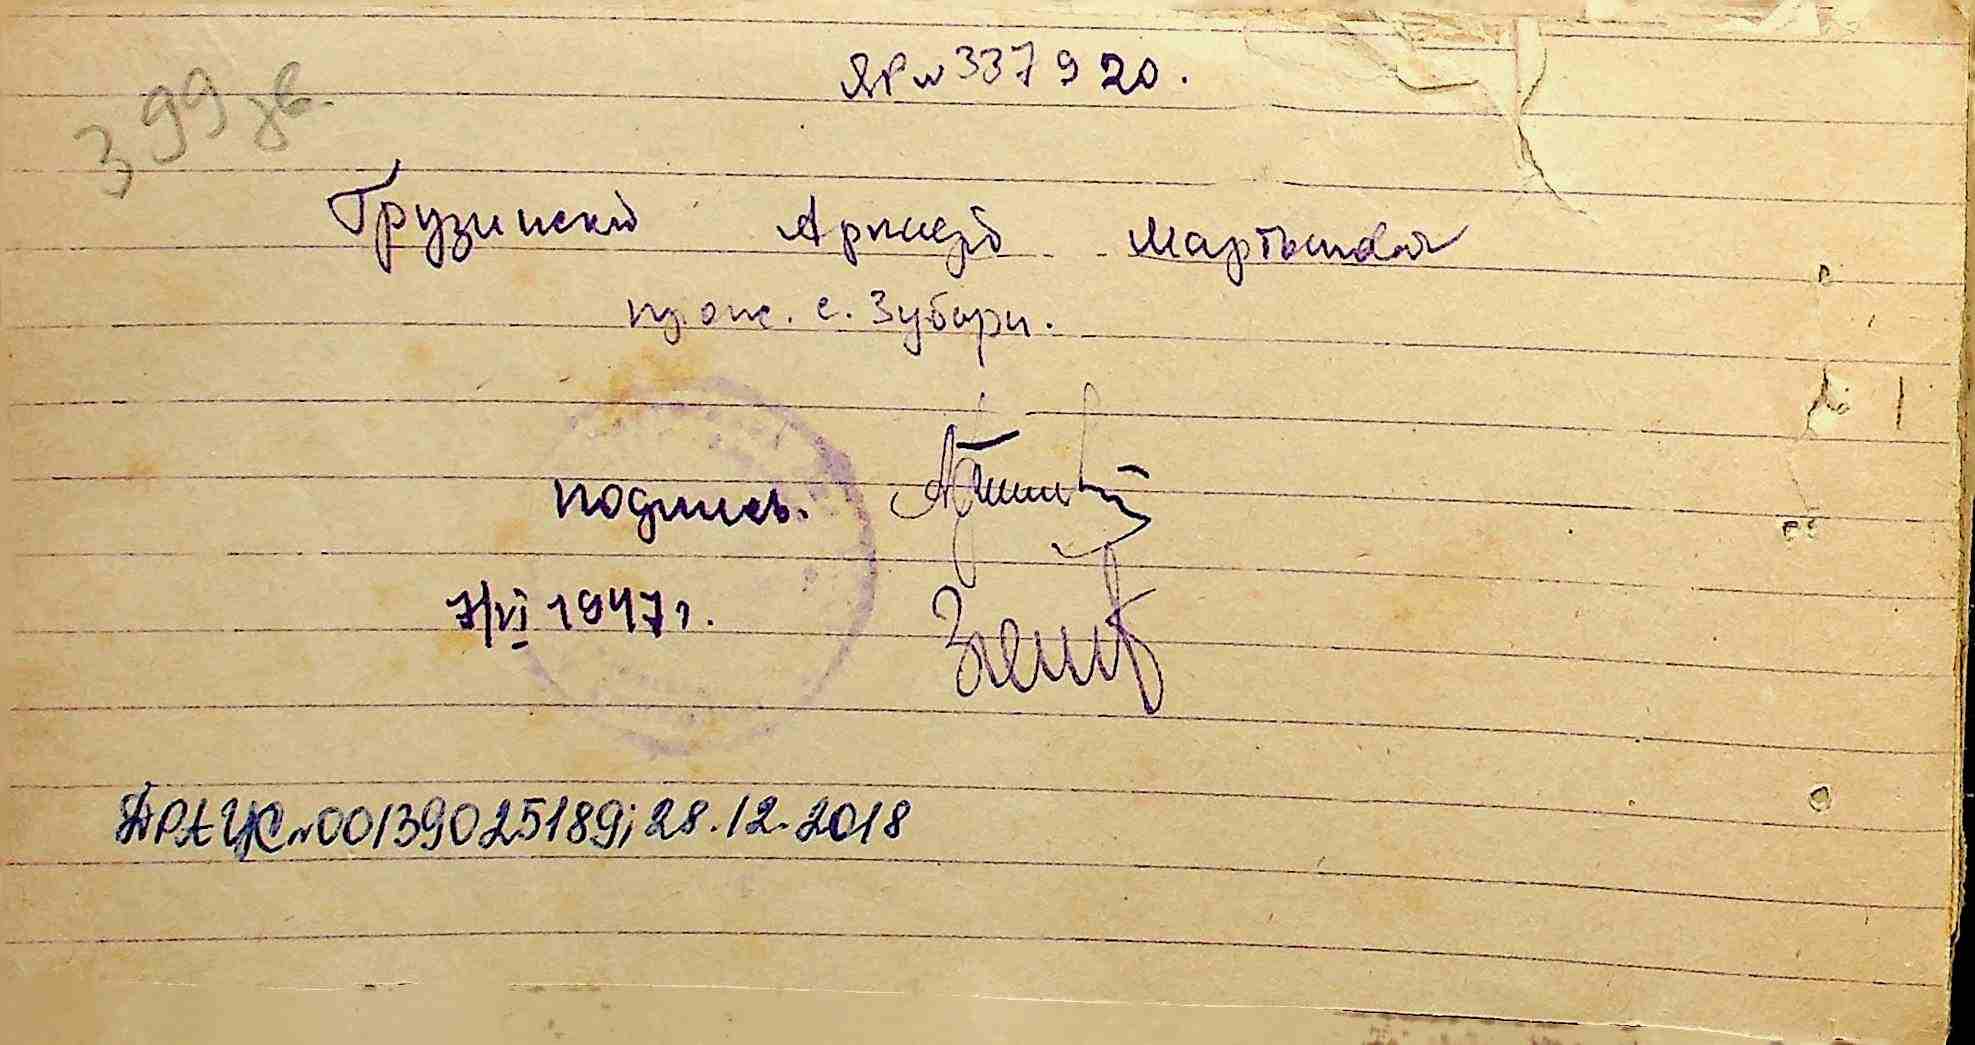 ЯР № 337920.
399 зв.
Грузински Аркадий Мартынович
прож. с. Зубари.
подпись.
7/VI 1947 г.
№ 00139025189; 28.12.2018